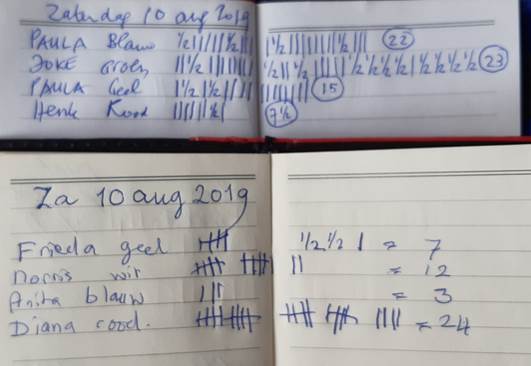 Zaterdag 10 aug 2019
PAULA Blauw ½||||||½||| |½|||||||½||| 22
JOKE Groen ||½|||||| ½||½|||||½½½½|½½½½ 23
PAULA Geel |½|½|||| ||||||| 15
Henk Rood ||||||½| 7½
Za 10 aug 2019
Frieda geel 卌 ½ ½ | = 7
norris wit 卌 卌 || = 12
Anita blauw ||| = 3
Diana rood. 卌 卌 卌 卌 |||| = 24